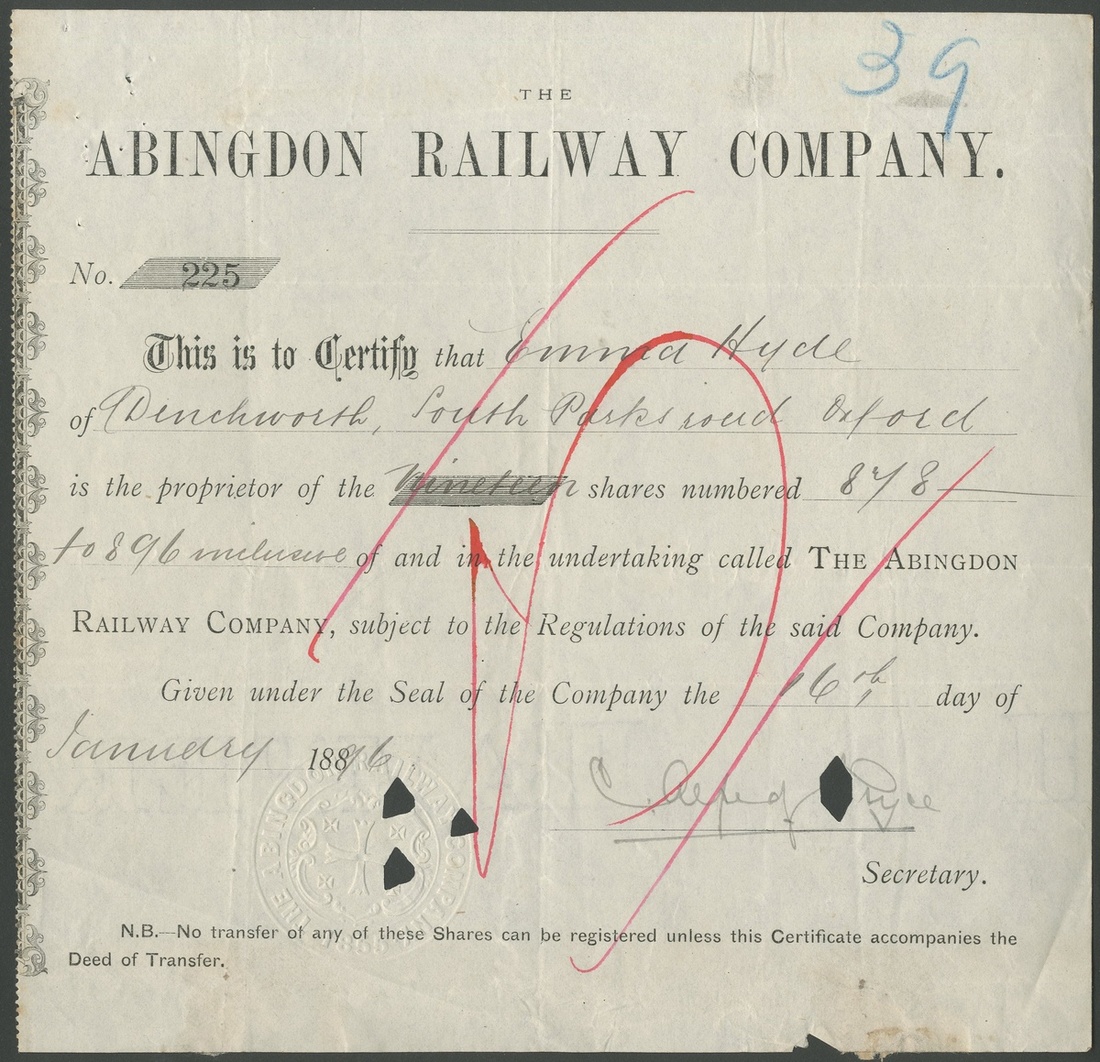 39
THE
ABINGDON RAILWAY COMPANY.
No. 225
This is to Certify that Emma Hyde
of Denchworth, South Parks road Oxford
is the proprietor of the Nineteen shares numbered 878
to 896 inclusive of and in the undertaking called THE ABINGDON
RAILWAY COMPANY, subject to the Regulations of the said Company.
Given under the Seal of the Company the 16th day of
January 1896
THE ABINGDON RAILWAY COMPANY
C. Alfred Pryce
Secretary.
N.B.—No transfer of any of these Shares can be registered unless this Certificate accompanies the
Deed of Transfer.